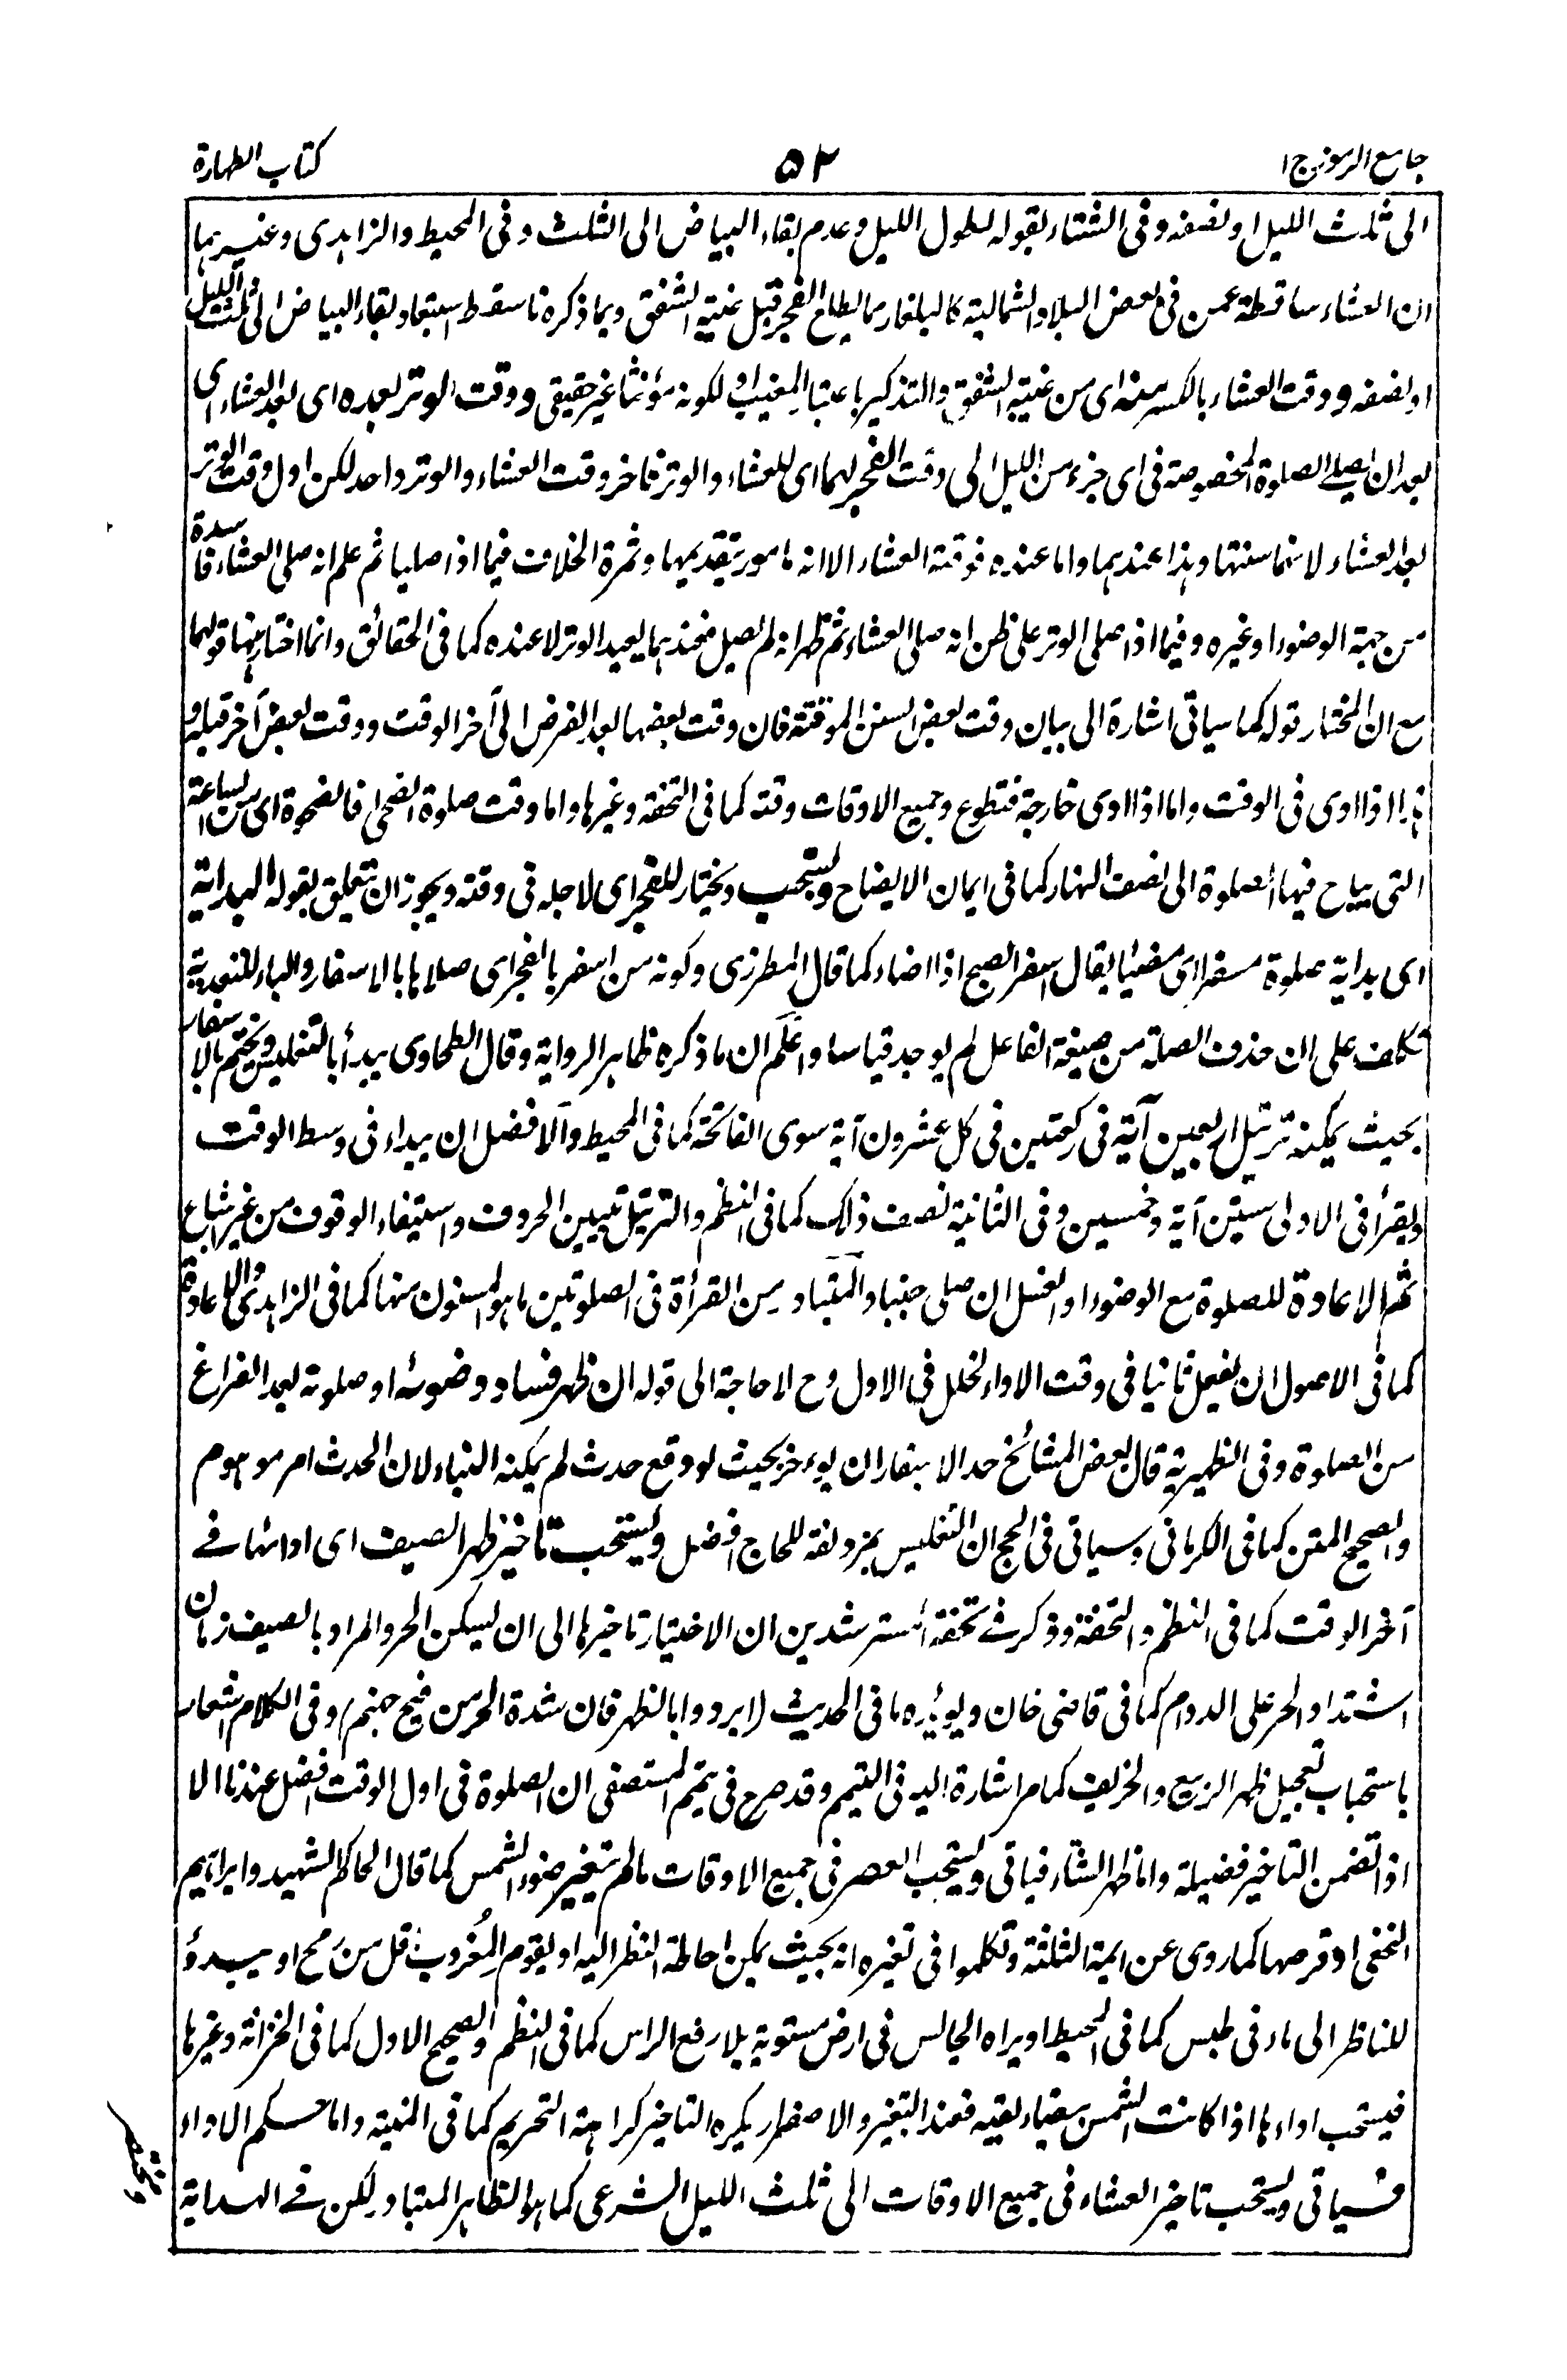 جامع الرموز ج ١
٥٢
كتاب الطهارة
الى ثلث الليل او نصفه وفى الشتاء بقوله لطول الليل وعدم بقاء البياض الى الثلث وفى المحيط والزاهدى وغيرهما
ان العشاء ساقطة عمن فى بعض البلاد الشمالية كالبلغار مما يطلع الفجر قبل غيبة الشفق وبما ذكرنا سقط استبعاد بقاء البياض الى ثلث الليل
او نصفه ووقت العشاء بالكسر منه اى من غيبة الشفق والتذكير باعتبار المغيب او لكونه مؤنثا غير حقيقى ووقت الوتر بعده اى بعد العشاء اى
بعد ان يصلى الصلوة المخصوصة فى اى جزء من الليل الى وقت الفجر لهما اى للعشاء والوتر فاخر وقت العشاء والوتر واحد لكن اول وقت الوتر
بعد العشاء لانها سنتها وهذا عندهما واما عنده فوقته العشاء الا انه مامور بتقديمها وثمرة الخلاف فيما اذا صليا ثم علم انه صلى العشاء فاسدة
من جهة الوضوء او غيره وفيما اذا صلى الوتر على ظن انه صلى العشاء ثم ظهر انه لم يصل فعندهما يعيد الوتر لا عنده كما فى الحقائق وانما اختار هنا قولهما
مع ان المختار قوله كما سياتى اشارة الى بيان وقت بعض السنن الموقتة فان وقت بعضها بعد الفرض الى آخر الوقت ووقت بعض آخر قبله و
هذا اذا ادى فى الوقت واما اذا ادى خارجة فتطوع وجميع الاوقات وقته كما فى التحفة وغيرها واما وقت صلوة الضحى فالضحوة اى من الساعة
التى يباح فيها الصلوة الى نصف النهار كما فى ايمان الايضاح ويستحب ويختار للفجر اى لاجله فى وقته ويجوز ان يتعلق بقوله البداية
اى بداية صلوة مسفرا اى مضيئا يقال اسفر الصبح اذا اضاء كما قال المطرزى وكونه من اسفر بالفجر اى صلاها بالاسفار والباء للتعدية
تكلف على ان حذف الصلة من صيغة الفاعل لم يوجد قياسا واعلم ان ما ذكره ظاهر الرواية وقال الطحاوى يبدأ بالتغليس ويختم بالاسفار
بحيث يمكنه ترتيل اربعين آية فى ركعتين فى كل عشرون آية سوى الفاتحة كما فى المحيط والافضل ان يبداء فى وسط الوقت
ويقرأ فى الاولى ستين آية وخمسين وفى الثانية نصف ذلك كما فى النظم والترتيل تبيين الحروف واستيفاء الوقوف من غير اشباع
ثم الاعادة للصلوة مع الوضوء او الغسل ان صلى جنبا والمتبادر من القرأة فى الصلوتين ما هو المسنون منها كما فى الزاهدى والاعادة
كما فى الاصول ان يفعل ثانيا فى وقت الاداء لخلل فى الاول وح لا حاجة الى قوله ان ظهر فساد وضوئه او صلوته بعد الفراغ
من الصلوة وفى الظهيرية قال بعض المشائخ حد الاسفار ان يؤخر بحيث لو وقع حدث لم يمكنه البناء لان الحدث امر موهوم
والصحيح المقن كما فى الكرمانى وسياتى فى الحج ان التغليس بمزدلفة للحاج افضل ويستحب تاخير ظهر الصيف اى ادائها فے
آخر الوقت كما فى النظم والتحفة وذكر فے تحفة المسترشدين ان الاختيار تاخيرها الى ان ليسكن الحر والمراد بالصيف زمان
اشتداد الحر على الدوام كما فى قاضى خان ويؤيره ما فى الحديث (ابردوا بالظهر فان شدة الحر من فيح جهنم) وفى الكلام اشعار
باستحباب تعجيل ظهر الربيع والخريف كما مر اشارة اليه فى التيمم وقد صرح فى تيمم المستصفى ان الصلوة فى اول الوقت افضل عندنا الا
اذا تضمن التاخير فضيلة واما ظهر الشتاء فياتى ويستحب العصر فى جميع الاوقات مالم يتغير ضوء الشمس كما قال الحاكم الشهيد وابراهيم
النخعى او قرصها كما روى عن ايمة الثلثة وتكلموا فى تغيره انه بحيث يمكن احاطة النظر اليه او يقوم للغروب اقل من رمح او يبدؤ
للناظر الى ماء فى طبس كما فى المحيط او يراه الجالس فى ارض مستوية بلا رفع الراس كما فى النظم والصحيح الاول كما فى الخزانة وغيرها
فيستحب اداءها اذا كانت الشمس بيضاء نقيه فعند التغير والاصفرار يكره التاخير كراهة التحريم كما فى المنية واما حكم الاداء
فسياتى ويستحب تاخير العشاء فى جميع الاوقات الى ثلث الليل الشرعى كما هو الظاهر المتبادر لكن فے الهداية